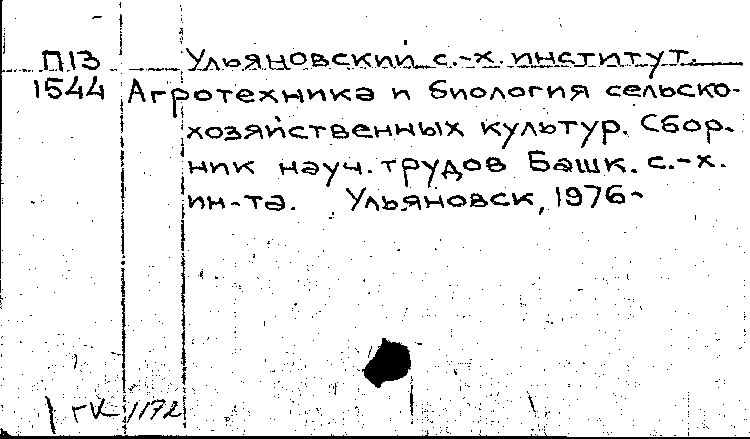 П13 Ульяновский с.-х. институт.
1544 Агротехника и биология сельско-
хозяйственных культур. Сбор-
ник науч. трудов Башк. с.-х.
ин-та. Ульяновск, 1976-
ГК 1172